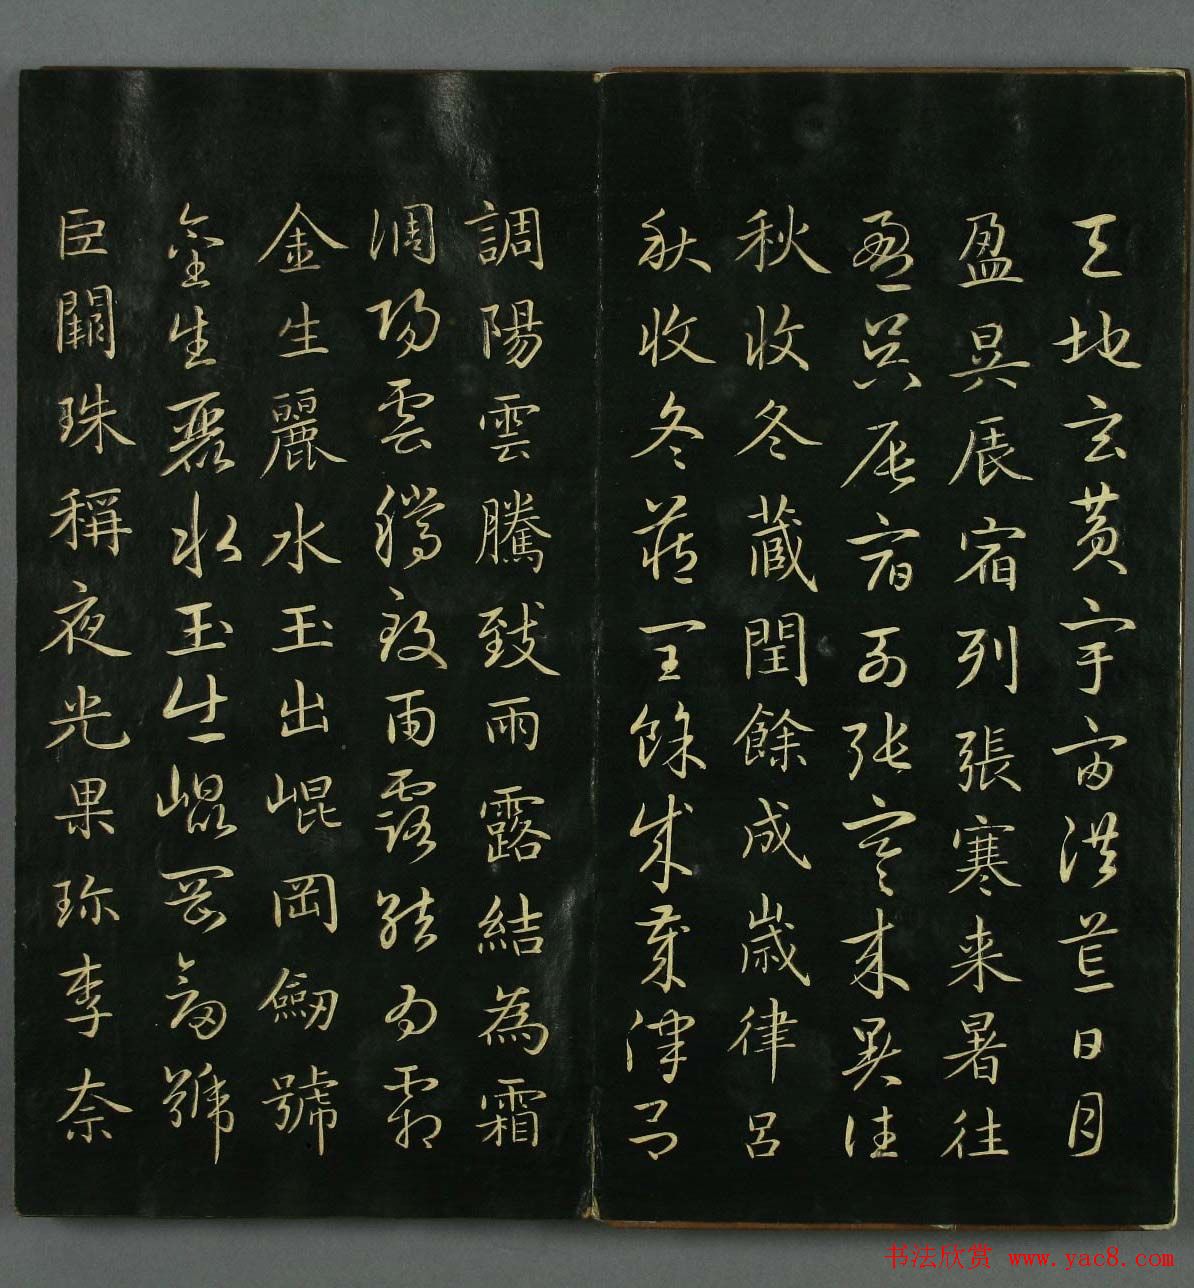 天地玄黃宇宙洪荒日月
盈昃辰宿列張寒来暑往
盈昃辰宿列張寒來暑往
秋收冬藏閏餘成歲律呂
秋收冬藏閏餘成歲律呂
調陽雲騰致雨露結為霜
調陽雲騰致雨露結為霜
金生麗水玉出崐岡劒號
金生麗水玉出崐岡劒號
巨闕珠稱夜光果珎李奈
书法欣赏 www.yac8.com